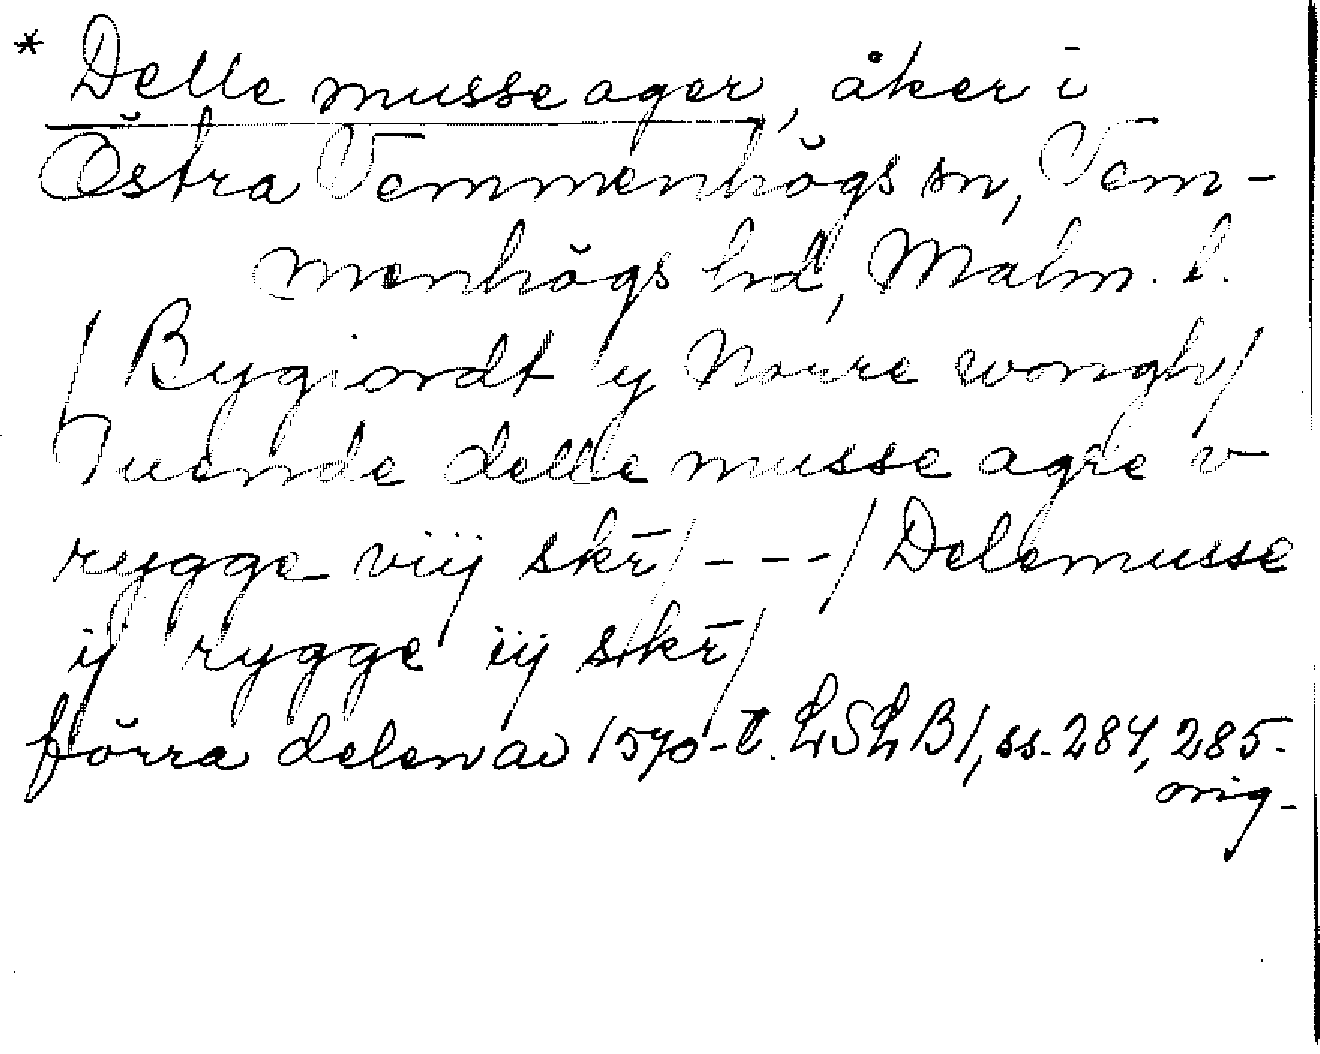 * Delle musse ager, åker i
Östra Vemmenhögs sn, Vem-
menhögs hd, Malm. l.
/ Bygiordt y Norre wongh /
Tuende delle musse agre v
rygge viij skr̄ / - - - / Delemusse
ij rygge iij skr̄ /
förra delen av 1570-t. LSLB1, ss. 284, 285.
orig-